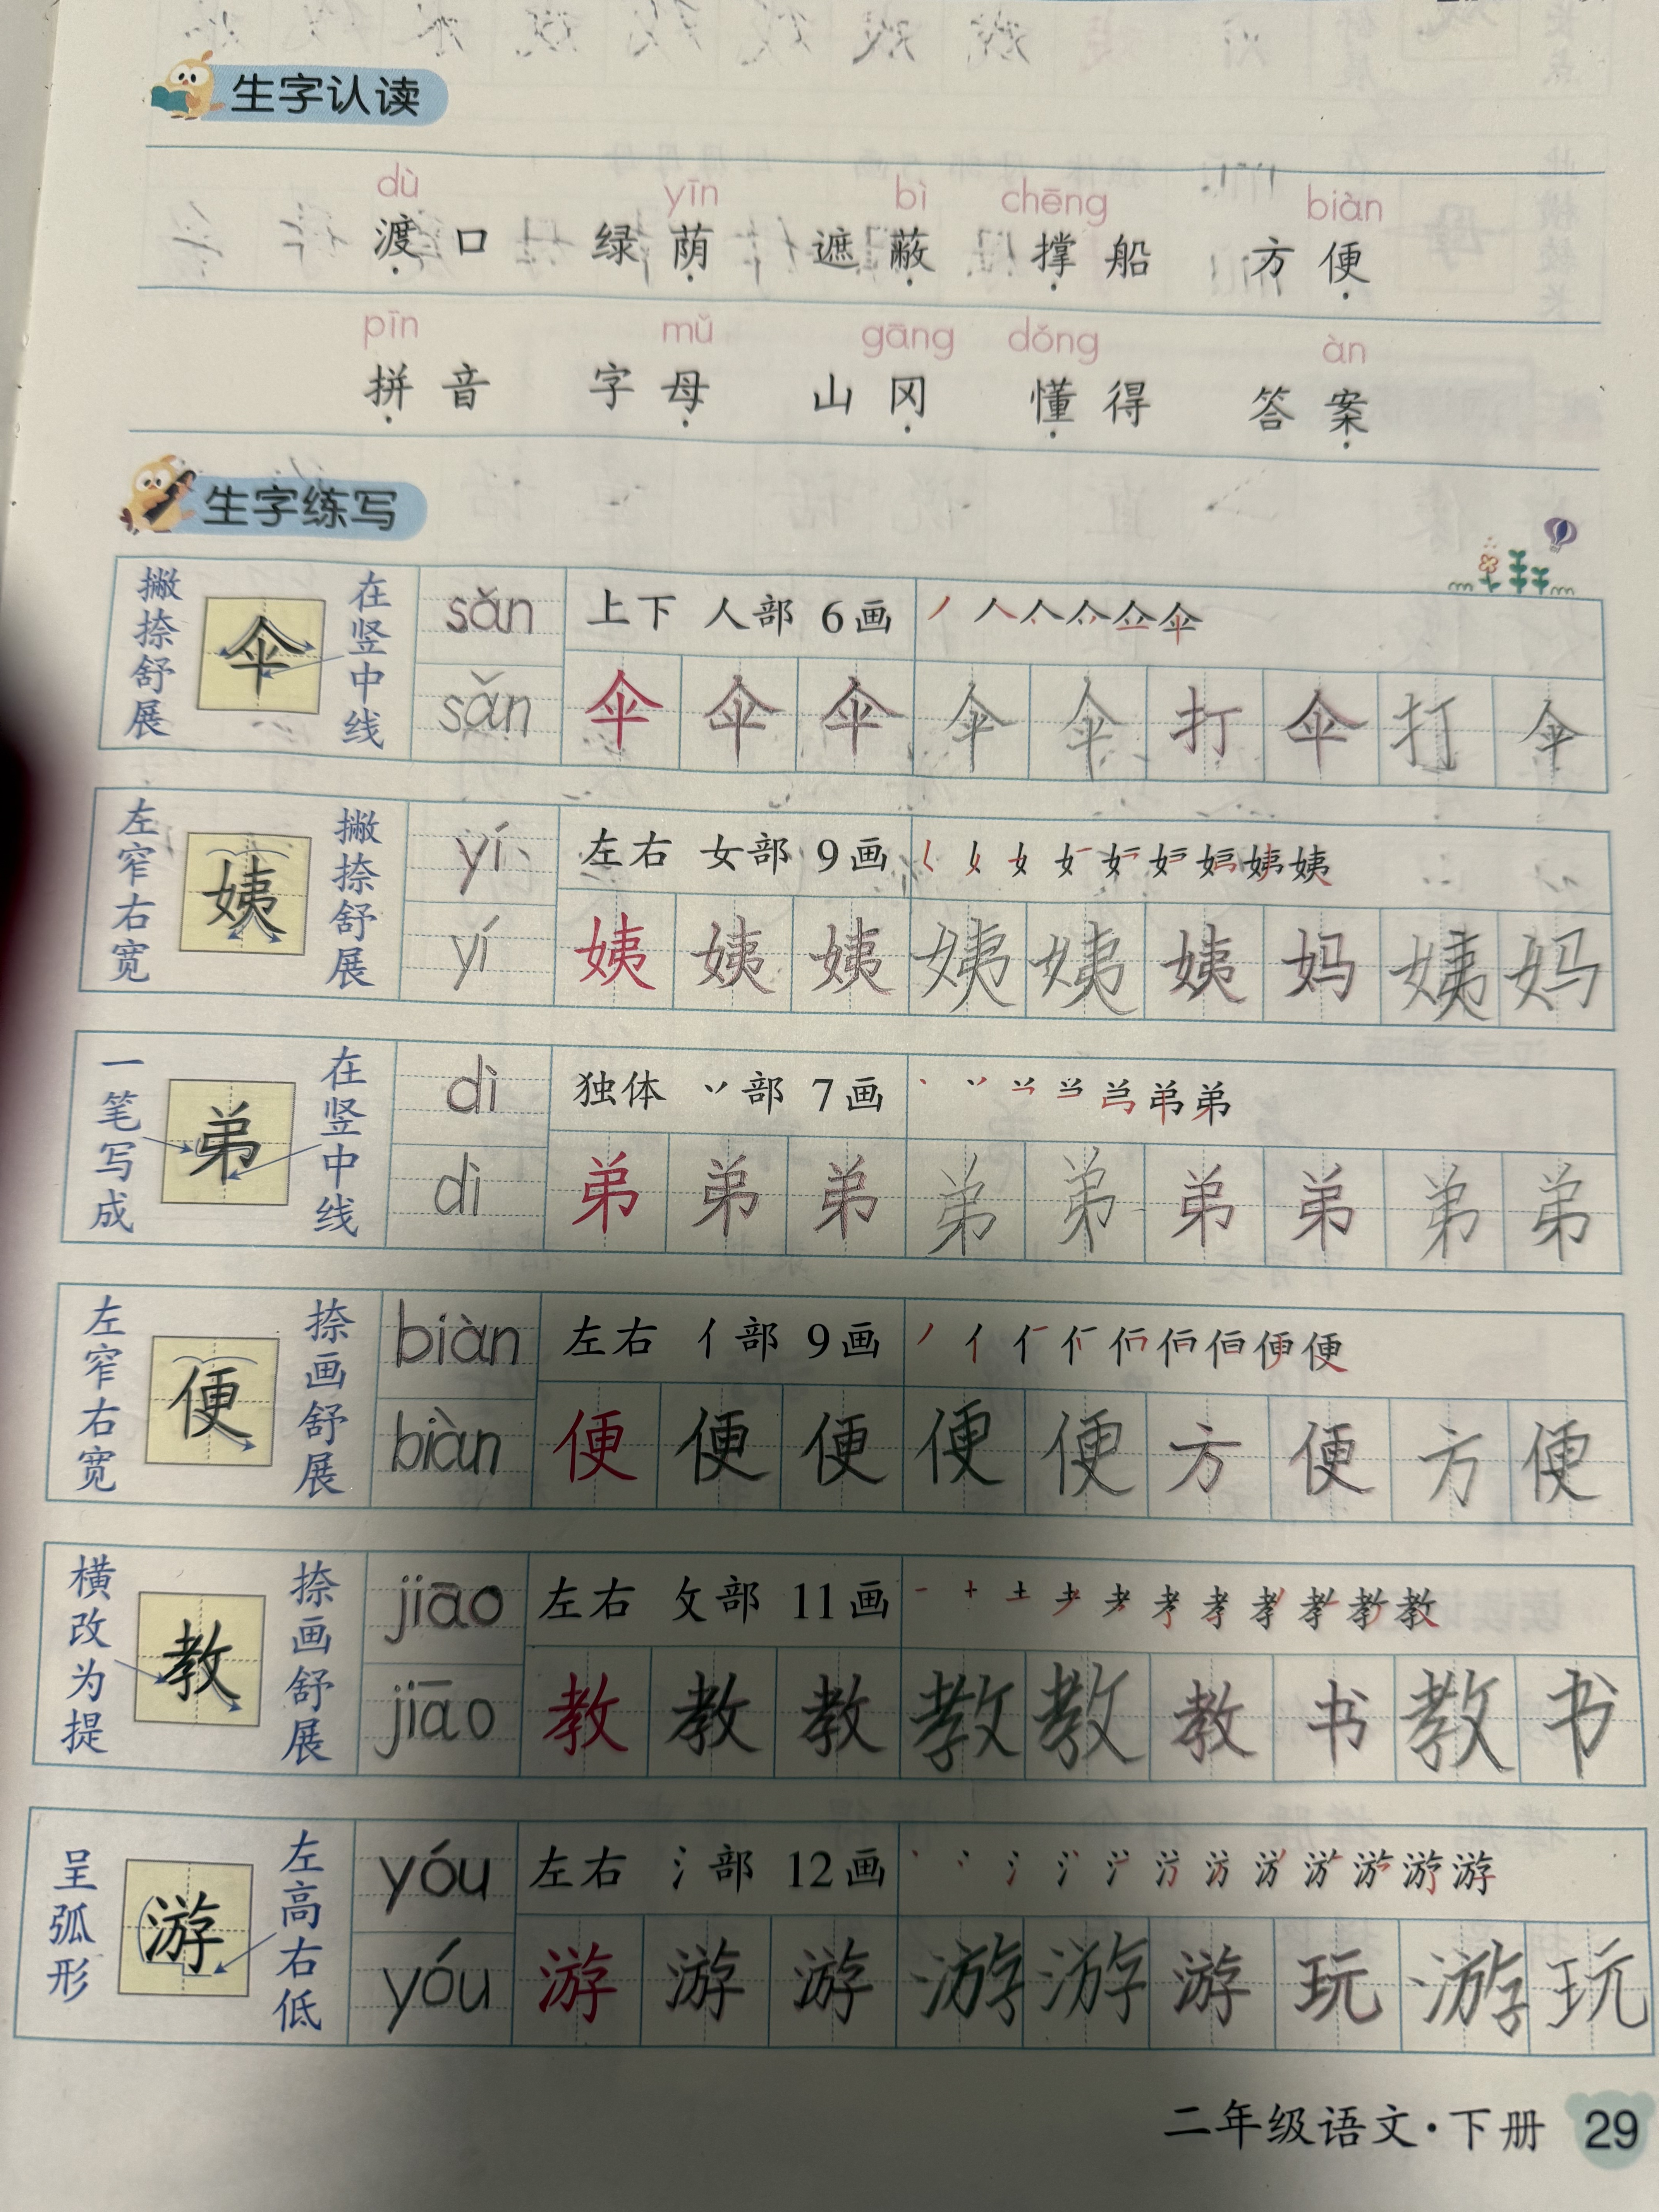 生字认读
dù yīn bì chēng biàn
渡口 绿荫 遮蔽 撑船 方便
pīn mǔ gāng dǒng àn
拼音 字母 山冈 懂得 答案
生字练写
撇捺舒展 伞 在竖中线 sǎn 上下 人部 6画 伞
sǎn 伞 伞 伞 伞 伞 打 伞 打 伞
左窄右宽 姨 撇捺舒展 yí 左右 女部 9画 姨
yí 姨 姨 姨 姨 姨 姨 妈 姨 妈
一笔写成 弟 在竖中线 dì 独体 丷部 7画 弟
dì 弟 弟 弟 弟 弟 弟 弟 弟 弟
左窄右宽 便 捺画舒展 biàn 左右 亻部 9画 便
biàn 便 便 便 便 便 方 便 方 便
横改为提 教 捺画舒展 jiāo 左右 攵部 11画 教
jiāo 教 教 教 教 教 教 书 教 书
呈弧形 游 左高右低 yóu 左右 氵部 12画 游
yóu 游 游 游 游 游 游 玩 游 玩
二年级语文·下册 29